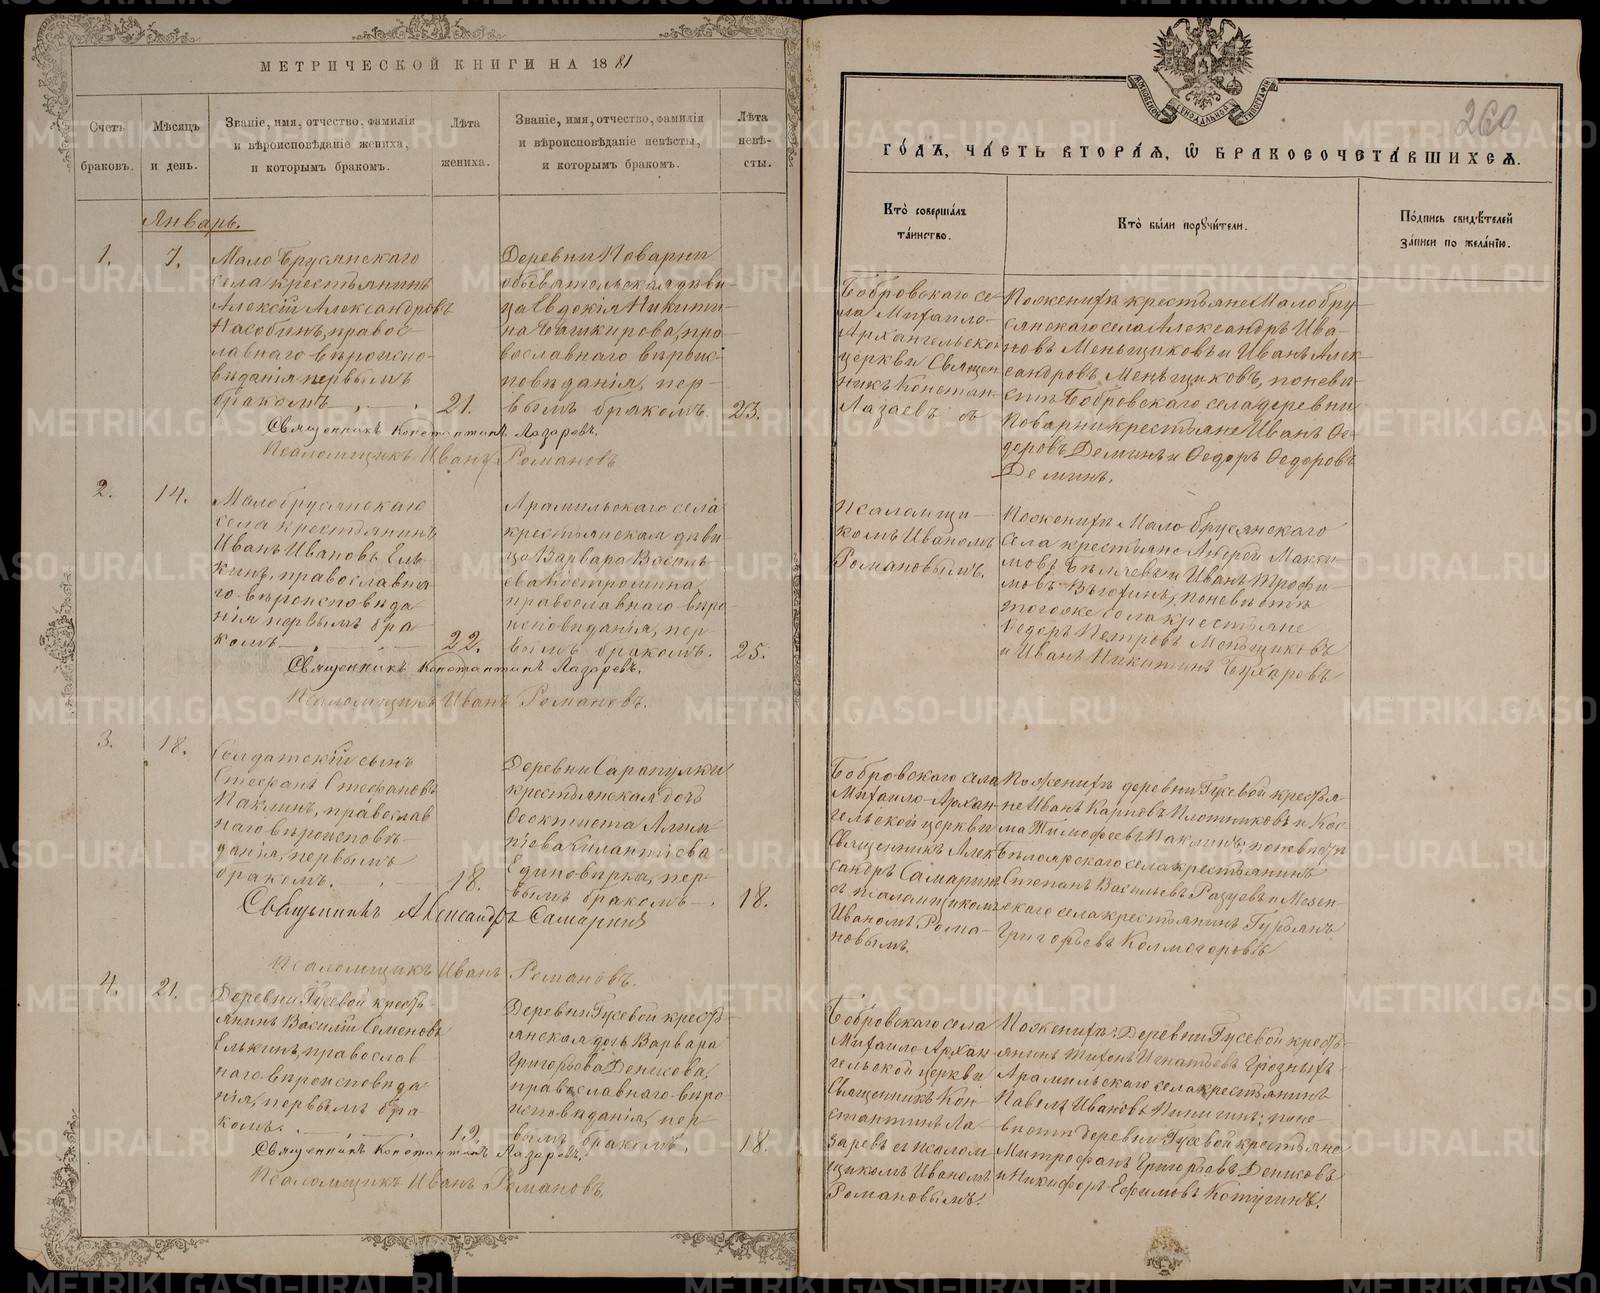 МЕТРИЧЕСКОЙ КНИГИ НА 1881
Счетъ браковъ.
Мѣсяцъ и день.
Званіе, имя, отчество, фамилія
и вѣроисповѣданіе жениха,
и которымъ бракомъ.
Лѣта жениха.
Званіе, имя, отчество, фамилія
и вѣроисповѣданіе невѣсты,
и которымъ бракомъ.
Лѣта невѣ-
сты.
Январь.
1.
7.
Мало Брусянскаго
села крестьянинъ
Алексій Александровъ
православнаго вѣроиспо-
вѣданія первымъ
бракомъ
21.
Деревни Поварни
обывательская дѣви-
ца Евдокія Никити-
на Башкирова, пра-
вославнаго вѣроис-
повѣданія, пер-
вымъ бракомъ.
23.
Священникъ Константинъ Лазаревъ.
Псаломщикъ Иванъ Романовъ
2.
14.
Малобрусянскаго
села крестьянинъ
Иванъ Ивановъ Ель-
кинъ, православна-
го вѣроисповѣда-
нія первымъ бра-
комъ
22.
Арамильскаго села
крестьянская дѣви-
ца Варвара Василь-
ева Костромина,
православнаго вѣро-
исповѣданія, пер-
вымъ бракомъ.
25.
Священникъ Константинъ Лазаревъ.
Псаломщикъ Иванъ Романовъ.
3.
18.
Солдатскій сынъ
Стефанъ Стефановъ
Паклинъ, православ
наго вѣроисповѣ-
данія, первымъ
бракомъ.
18.
Деревни Сарапулки
крестьянская дочь
Феоктиста
Единовѣрка, пер-
вымъ бракомъ
18.
Священникъ Александръ Самаринъ
Псаломщикъ Иванъ Романовъ.
4.
21.
Деревни Гусевой кресть
янинъ Василій Семеновъ
Елькинъ, православ
наго вѣроисповѣда
нія, первымъ бра
комъ.
19.
Деревни Гусевой кресть-
янская дочь Варвара
Григорьева Денисова,
православнаго вѣро
исповѣданія, пер
вымъ бракомъ,
18.
Священникъ Константинъ Лазаревъ.
Псаломщикъ Иванъ Романовъ.
260
ГОДЪ, ЧАСТЬ ВТОРАЯ, Ѡ БРАКОСОЧЕТАВШИХСЯ.
Кто совершалъ
таинство.
Кто были поручители.
Подпись свидѣтелей
записи по желанію.
Бобровскаго се-
ла Михаило-
Архангельской
церкви Священ
никъ Констан
Лазаевъ съ
По женихѣ крестьяне Малобру-
сянскаго села Александръ Ива-
новъ Меньщиковъ и Иванъ Алек-
сандровъ Меньщиковъ, по невѣ-
стѣ Бобровскаго села деревни
Поварни крестьяне Иванъ Ѳе-
доровъ Деминъ и Ѳедоръ Ѳедоровъ
Деминъ.
псаломщи-
комъ Иваномъ
Романовымъ.
По женихѣ Мало-брусянскаго
села крестьяне Андрей Макси-
мовъ и Иванъ Трофи-
мовъ по невѣстѣ
того же села крестьяне
Ѳедоръ Петровъ Меньщиковъ
и Иванъ Никитинъ Бухаровъ
Бобровскаго села
Михаило-Архан-
гельской церкви
Священникъ Алек
сандръ Самаринъ
съ псаломщикомъ
Иваномъ Рома-
новымъ.
По женихѣ деревни Гусевой крестья-
не Иванъ Карповъ Плотниковъ и Кос-
ма Тимофеевъ Паклинъ; по невѣстѣ
Бѣлоярскаго села крестьянинъ
Степанъ Васильевъ и Мезен-
скаго села крестьянинъ Гурьянъ
Григорьевъ Колмогоровъ
Бобровскаго села
Михаило Архан-
гельской церкви
Священникъ Кон
стантинъ Ла-
заревъ съ псалом
щикомъ Иваномъ
Романовымъ.
По женихѣ: Деревни Гусевой кресть-
янинъ Тихонъ Игнатьевъ Грозныхъ
Арамильскаго села крестьянинъ
Павелъ Ивановъ Пинигинъ; по не-
вѣстѣ деревни Гусевой крестьяне
Митрофанъ Григорьевъ Денисовъ
и Никифоръ Ефимовъ
METRIKI.GASO-URAL.RU